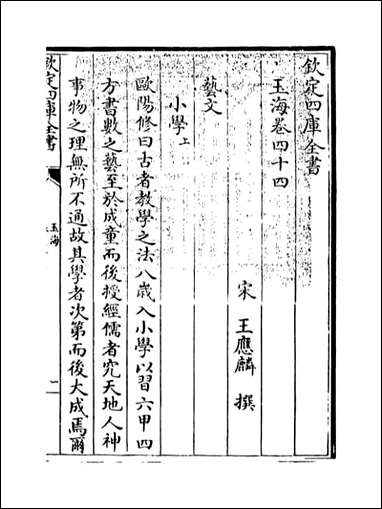 欽定四庫全書
玉海卷四十四
宋 王應麟 撰
藝文
小學上
歐陽修曰古者教學之法八歲入小學以習六甲四
方書數之藝至於成童而後授經儒者究天地人神
事物之理無所不通故其學者次第而後大成焉爾
欽定四庫全書
玉海